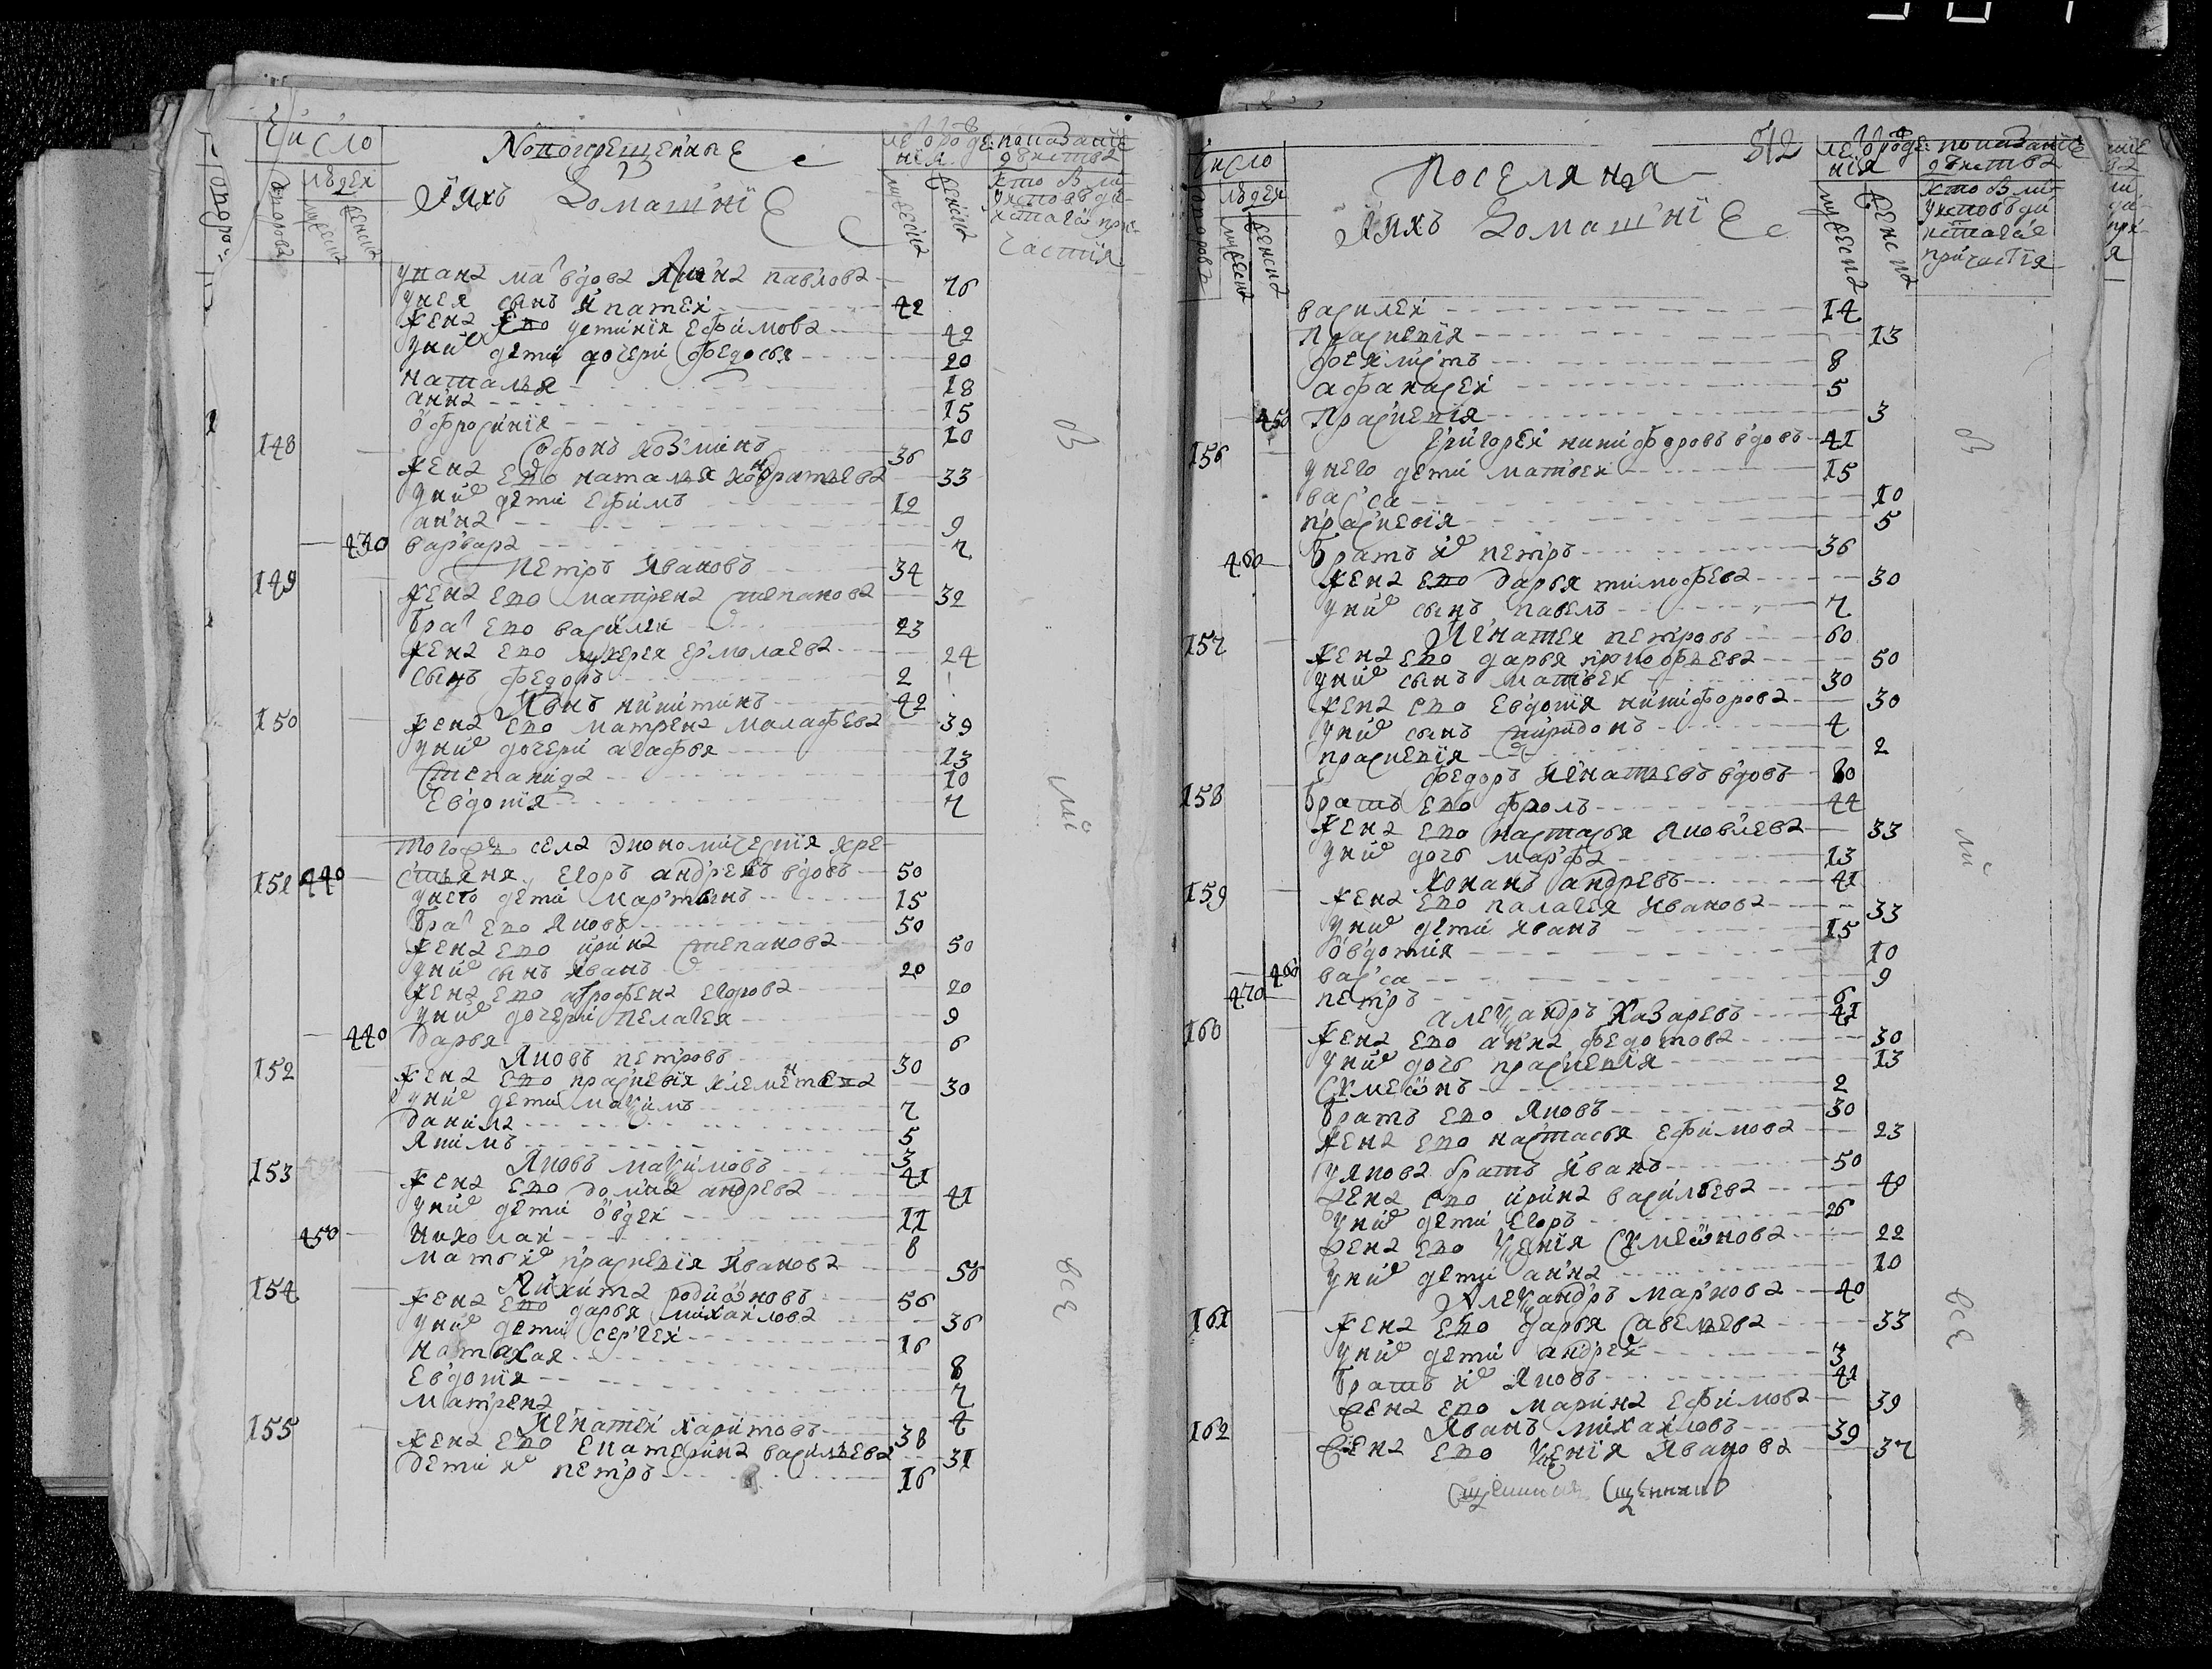 Число
Новокрещенные
лѣ ѿ рожде: показанїе
нїя дѣиства
дворовъ
людеи
мужеска
женска
И ихъ домашнїе
мужеска
женска
у панa ма вдова Анна павлова 76
у нея сынъ Ипатеи 42
жена ево устинїя ефимова 42
у них дети дочери федосья 20
наталья 18
анна 15
офросинїя 10
148 Софонъ козминъ 36
жена ево наталья кондратьева 33
у них дети ефимъ 12
анна 9
430 варвара 7
149 петръ Иванов 34
жена ево матрена степанова 32
бра ево василеи 23
жена ево лукерея ермолаева 24
сынъ федоръ 2
150 Иванъ никитинъ 42
жена ево матрена малафева 39
у них дочери агафья 13
степанида 10
евдокия 7
того ж села экономическия кре
151 440 стьяня, егоръ андреевъ вдовъ 50
у него дети мартынъ 15
бра ево яковъ 50
жена ево ирина степанова 50
у них сынъ иванъ 20
жена ево агрофена егорова 20
у них дочери пелагея 9
440 дарья 6
152 Яковъ петровъ 30
жена ево праскевїя клементева 30
у них дети максимъ 7
данила 5
якимъ 3
153 Яковъ максимовъ 41
жена ево домна андрева 41
у них дети овдеи 11
450 николаи 8
мать их праскевїя иванова 56
154 Никита родиѡновъ 56
жена ево дарья михаилова 36
у них дети сергеи 16
наталья 8
евдокїя 7
матрена 4
155 Игнатеи харитовъ 38
жена ево екатерина василева 31
дети их петръ 16
в
ми
всѣ
Число
Поселяня
512
лѣ ѿ рожде: показанїе
нїя дѣиства
людеи
И ихъ домашнїе
мужеска
женска
василеи 14
праскевїя 13
феклистъ 8
афанасеи 5
450 праскевїя 3
156 григореи никифоровъ вдовъ 41
у него дети матвеи 15
васса 10
праскевїя 5
460 братъ их петръ 36
жена ево дарья тимофева 30
у них сынъ павелъ 7
157 Игнатеи петровъ 60
жена ево дарья прокофьева 50
у них сынъ матвеи 30
жена ево евдокия никифорова 30
у них сынъ спиридонъ 4
праскевїя 2
158 федоръ игнатьевъ вдовъ 80
братъ ево фролъ 44
жена ево настасья яковлева 33
у них дочь марфа 13
159 Конанъ андревъ 41
жена ево палагея иванова 33
у них дети иванъ 15
овдотия 10
460 васса 9
470 петръ 6
160 александръ казаревъ 41
жена ево анна федотова 30
у них дочь праскевїя 13
сѵмеѡнъ 2
братъ ево яковъ 30
жена ево настасья ефимова 23
у якова братъ иванъ 50
жена ево ирина василева 40
у них дети егоръ 26
жена ево ксенїя сѵмеѡнова 22
у них дети анна 10
161 Александръ марковъ 40
жена ево дарья савельева 33
у них дети андреи 3
братъ их яковъ 41
жена ево марина ефимова 39
162 Иванъ михаиловъ 39
жена ево ксенїя иванова 37
в
ми
всѣ